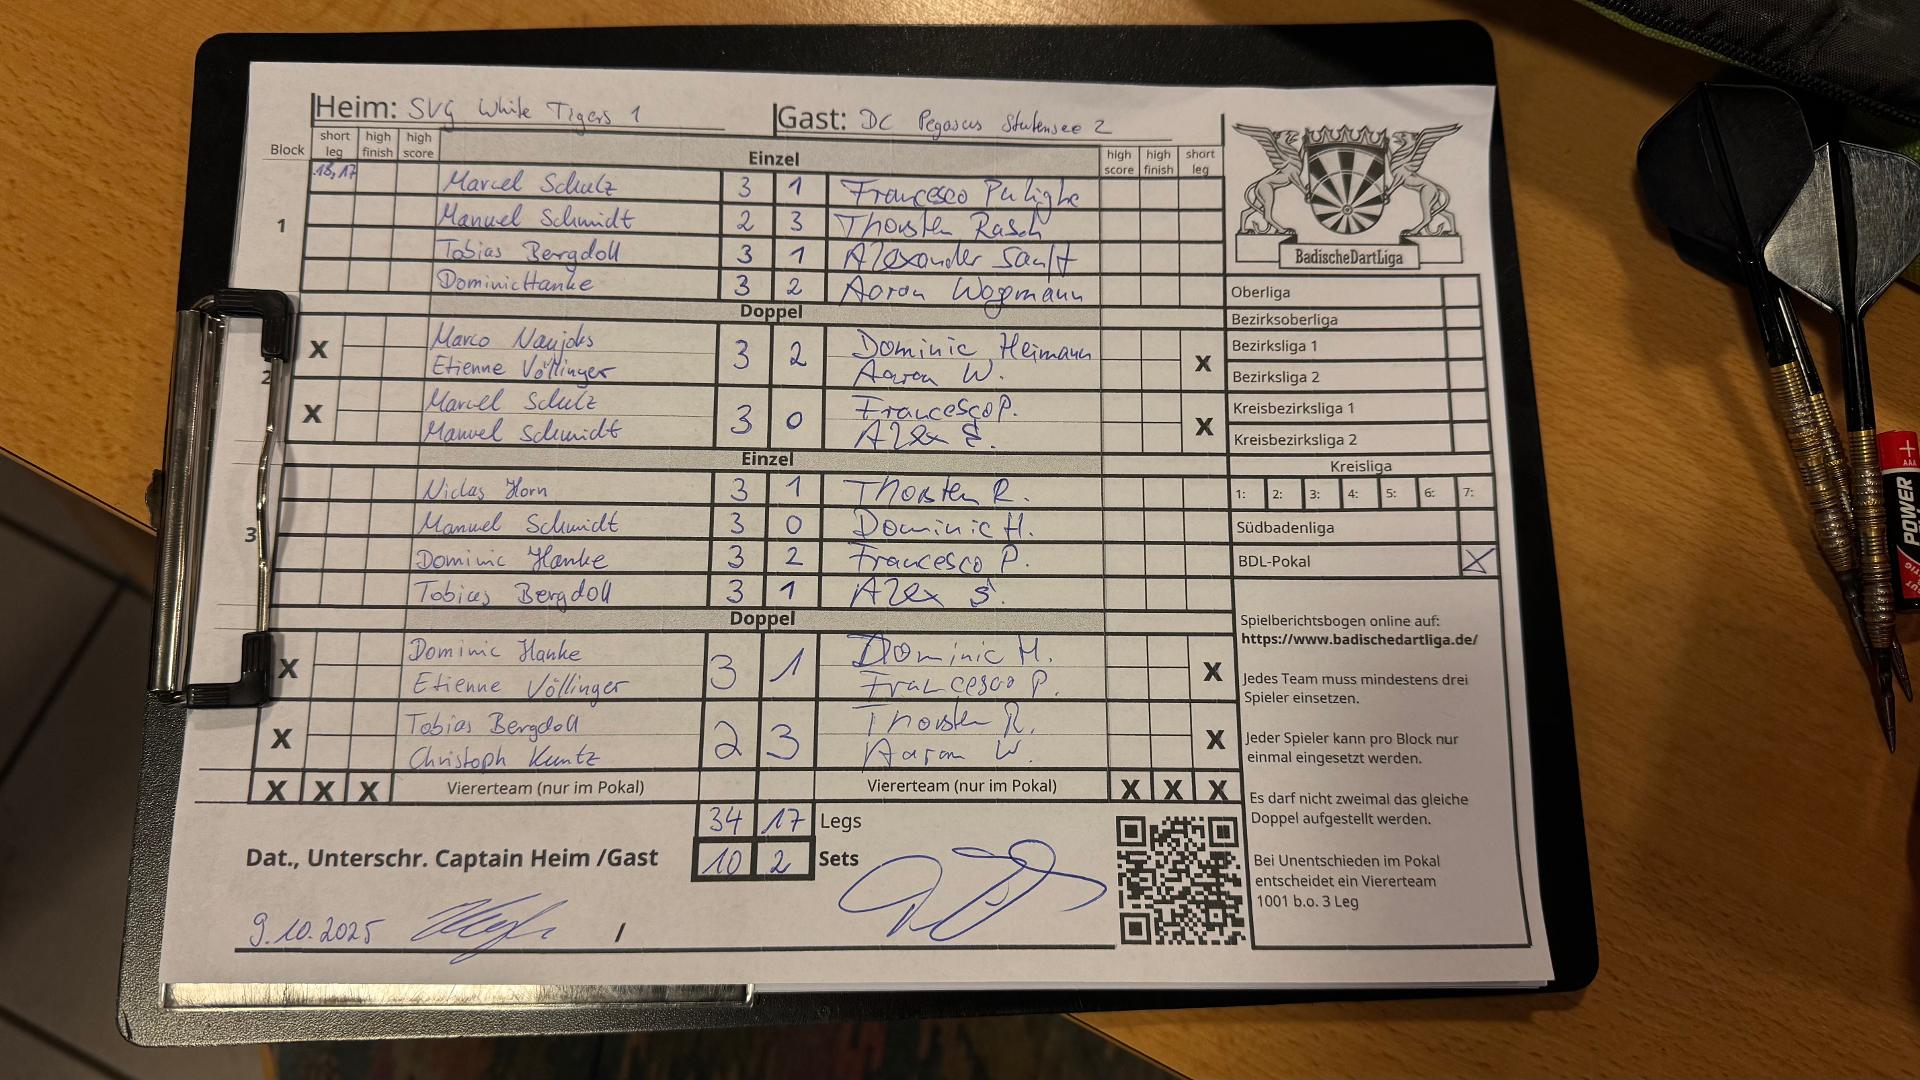 Heim: SVG White Tigers 1 Gast: DC Pegasus Stutensee 2
Block short leg high finish high score Einzel high score high finish short leg
1
18,17 Marcel Schulz 3 1 Francesco Pulighe
Manuel Schmidt 2 3 Thorsten Rasch
Tobias Bergdoll 3 1 Alexander Sanft
Dominic Hanke 3 2 Aaron Wogmann
Doppel
2
X Marco Naujoks 3 2 Dominic Heimann X
Etienne Völlinger Aaron W.
X Marcel Schulz 3 0 Francesco P. X
Manuel Schmidt Alex S.
Einzel
3
Niclas Horn 3 1 Thorsten R.
Manuel Schmidt 3 0 Dominic H.
Dominic Hanke 3 2 Francesco P.
Tobias Bergdoll 3 1 Alex S.
Doppel
X Dominic Hanke 3 1 Dominic H. X
Etienne Völlinger Francesco P.
X Tobias Bergdoll 2 3 Thorsten R. X
Christoph Kuntz Aaron W.
X X X Viererteam (nur im Pokal) Viererteam (nur im Pokal) X X X
34 17 Legs
Dat., Unterschr. Captain Heim /Gast 10 2 Sets
9.10.2025 /
BadischeDartLiga
Oberliga
Bezirksoberliga
Bezirksliga 1
Bezirksliga 2
Kreisbezirksliga 1
Kreisbezirksliga 2
Kreisliga
1: 2: 3: 4: 5: 6: 7:
Südbadenliga
BDL-Pokal X
Spielberichtsbogen online auf:
https://www.badischedartliga.de/
Jedes Team muss mindestens drei
Spieler einsetzen.
Jeder Spieler kann pro Block nur
einmal eingesetzt werden.
Es darf nicht zweimal das gleiche
Doppel aufgestellt werden.
Bei Unentschieden im Pokal
entscheidet ein Viererteam
1001 b.o. 3 Leg
+
AAA
POWER